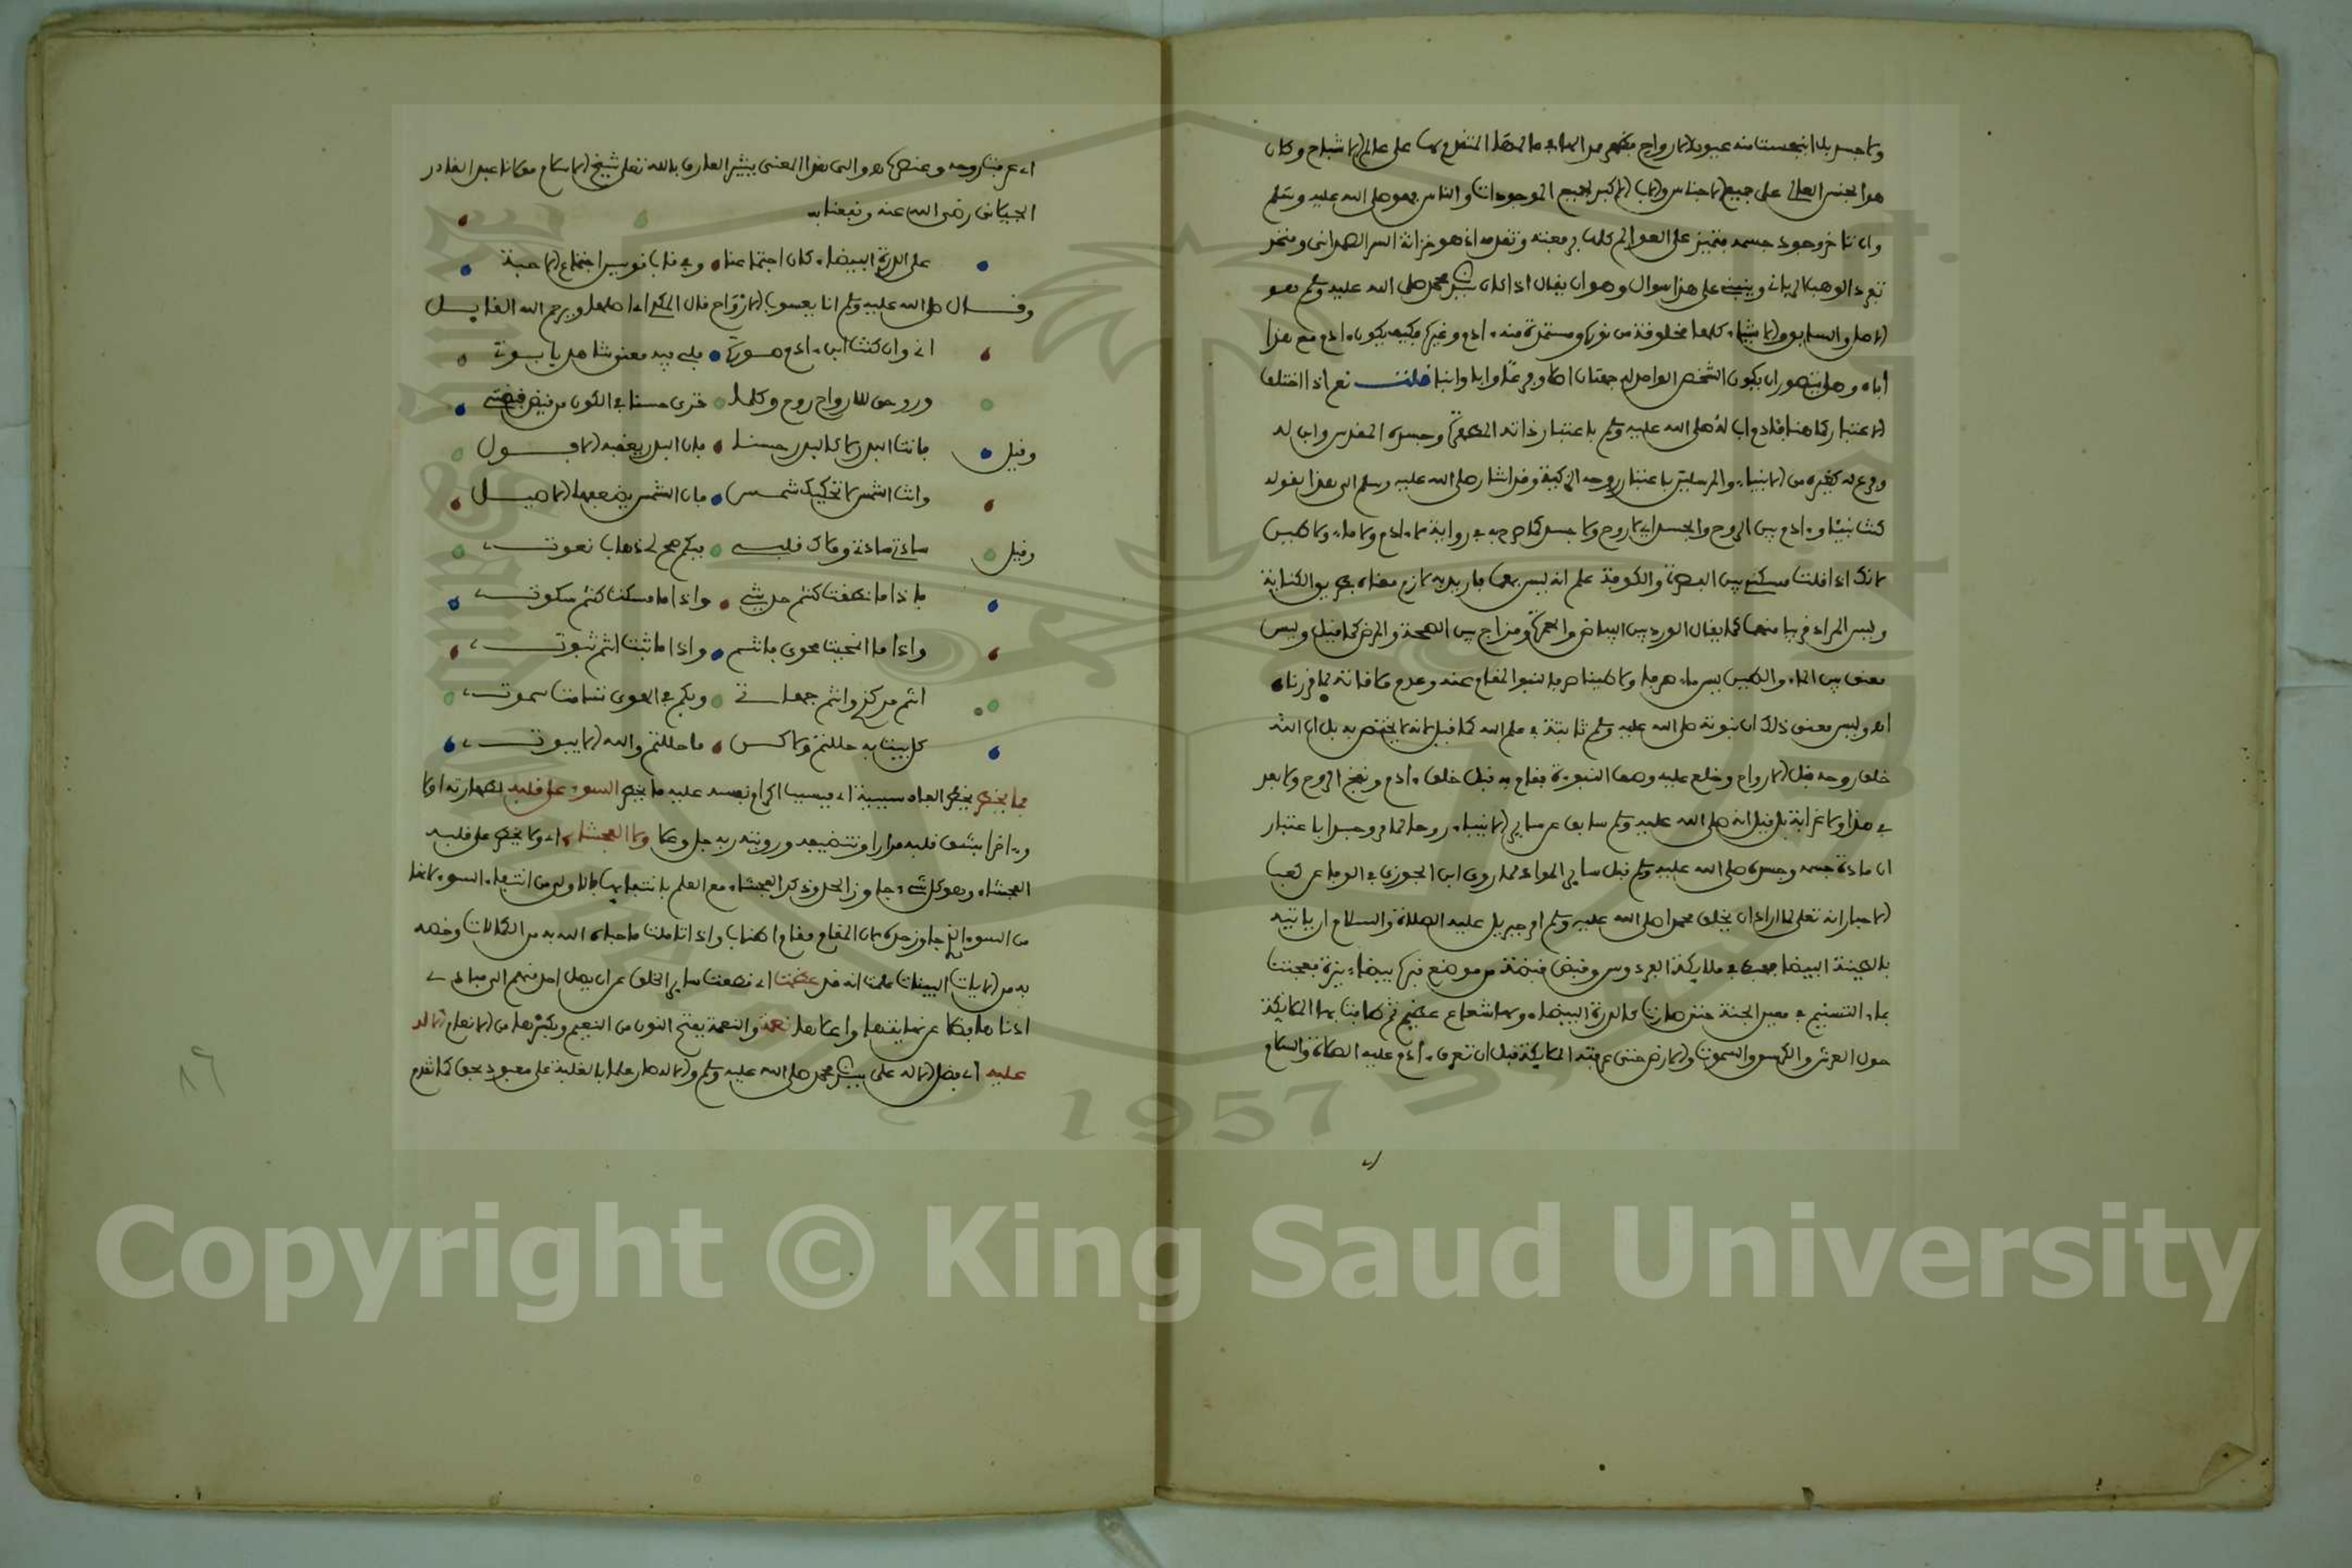 ولا جسد بل انبجست منه عيون الارواح فظهر من الملإ المتقدم بها على عالم الاشباح وكان
هو الجنس العالي على جميع الاجناس والاب الاكبر لجميع الموجودات والناس فهو صلى الله عليه وسلم
وان تاخر وجود جسمه متميز على العوالم كلها برفعته وتقدمه اذ هو خزانة السر الصمداني ومنفذ
تفرد الوهب وينبني على هذا سوال وهو ان يقال اذا كان نبينا محمد صلى الله عليه وسلم هو
الاصل والسابق والاشياء كلها مخلوقة من نوره ومستمدة منه ءادم وغيره فكيف يكون ءادم مع هذا
اباه وهل يتصور ان يكون الشخص الواحد له جهتان اصلا وفرعا وابا وابنا قلت نعم اذا اختلف
الاعتبار كما هنا فلادم اب له صلى الله عليه وسلم باعتبار ذاته المطهرة وجسده المقدس وابن له
وفرع له كغيره من الانبياء والمرسلين باعتبار روحه الزكية وقد اشار صلى الله عليه وسلم الى هذا بقوله
كنت نبيا وءادم بين الروح والجسد اي لا روح ولا جسد كما صرح به في رواية لا ءادم ولا ماء ولا طين
لانك اذا قلت مسكني بين البصرة والكوفة علم انه ليس بهما فاريد به لازم معناه بطريق الكناية
وليس المراد قريبا منهما كما يقال الورد بين البياض والحمرة ومزاج بين الصحة والمرض كما قيل وليس
معنى بين الماء والطين ليس ماء صرفا ولا طينا صرفا لنبو المقام عنه وعدم ملاقاته لما قررناه
اهـ وليس معنى ذلك ان نبوته صلى الله عليه وسلم ثابتة في علم الله كما قيل لانه لا يختص به بل ان الله
خلق روحه قبل الارواح وخلع عليه وصف النبوءة فقام به قبل خلق ءادم ونفخ الروح ولا بعد
في هذا ولا غرابة بل قيل انه صلى الله عليه وسلم سابق عن ساير الانبياء روحا كما مر وجسدا باعتبار
ان مادة جسمه وجسده صلى الله عليه وسلم قبل ساير المواد لما روى ابن الجوزي في الوفا عن كعب
الاحبار انه تعلى لما اراد ان يخلق محمدا صلى الله عليه وسلم امر جبريل عليه الصلاة والسلام ان ياتيه
بالطينة البيضاء فهبط في ملايكة الفردوس وقبض قبضة من موضع قبره بيضاء نيرة فعجنت
بماء التسنيم في معين الجنة حتى صارت كالدرة البيضاء ولها شعاع عظيم ثم طافت بها الملايكة
حول العرش والكرسي والسموت والارض حتى عرفته الملايكة قبل ان تعرف ءادم عليه الصلاة والسلام
اي عرفت روحه وعنصره اهـ والى هذا المعنى يشير العارف بالله تعلى شيخ الاسلام مولانا عبد القادر
الجيلاني رضي الله عنه ونفعنا به
على الدرة البيضاء كان اجتماعنا وفي قاب قوسين اجتماع الاحبة
وقال صلى الله عليه وسلم انا يعسوب الارواح قال الملا اي اصلها ويرحم الله القايل
اني وان كنت ابن ءادم صورة فلي فيه معنى شاهد بابوتي
وروحي للارواح روح وكلما ترى حسنا في الكون من فيض فيضتي
وقيل فانت البدر لا كالبدر حسنا فان البدر يعقبه الافول
وانت الشمس لا تحكيك شمس فان الشمس يضعفها الاصيل
وقيل ساداتي سادتي وملاك قلبي فيكم صح لي ذهاب نعوت
فاذا ما نطقت كنتم حديثي واذا ما سكت كنتم سكوت
واذا ما انمحيت محوي فانتم واذا ما ثبت انتم ثبوت
انتم مركزي وانتم جهاتي وبكم في الهوى تسامت سموت
كل بيت به حللتم ولاكن ما حللتم والله الا بيوت
فما يخطر يخطر العباد سببية اي فبسبب اكرام نفسه عليه ما يخطر السوء على قلبه لطهارته اولا
وءاخرا بشق قلبه مرارا وتنضيفه ورويته ربه جل وعلا ولا الفحشاء اي ولا يخطر على قلبه
الفحشاء وهو كل شيء جاوز الحد وذكر الفحشاء مع العلم بانتفايها بالاولى من انتفاء السوء لانها
من السوء الذي جاوز حده لان المقام مقام اطناب واذا تاملت ما حباه الله به من الكمالات وخصه
به من الايات البينات علمت انه قد عظمت اي قطعت ساير الخلق عن ان يصل احد منهم الى مبادي
ادناها فضلا عن نهايتها واعلاها نعمة والنعمة بفتح النون من التنعيم وبكسرها من الانعام الاله
عليه اي فضل الاله على نبينا محمد صلى الله عليه وسلم والاله صار علما بالغلبة على معبود بحق كما تقدم
٨٩
Copyright © King Saud University
1957